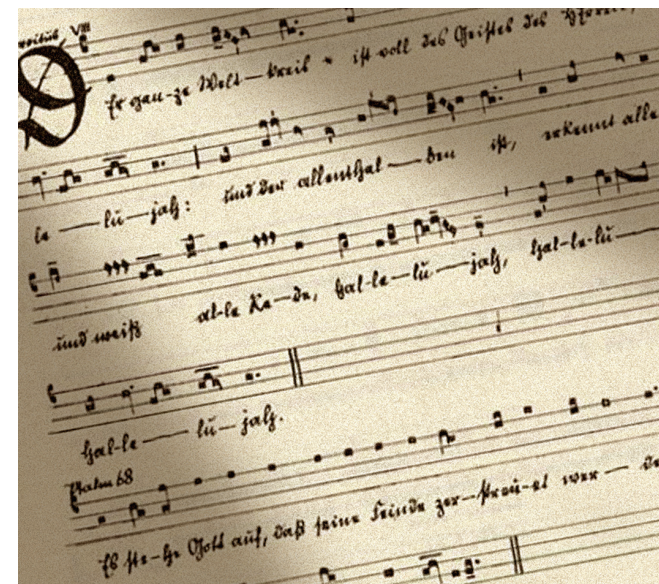 Introitus VIII
Der gan-ze Welt—kreis * ist voll des Geistes des Herren,
le——lu—jah: und der allenthal——ben ist, erkennt alle
und weiß al-le Re—de, hal-le—lu——jah, hal-le-lu——
hal-le——lu—jah.
Psalm 68
Es ste-he Gott auf, daß seine Feinde zer-streu-et wer—de